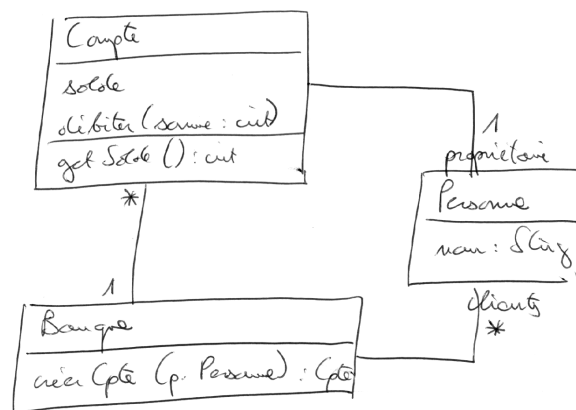 Compte
solde
débiter (somme : int)
get Solde () : int
*
1
propriétaire
Personne
nom : String
clients
*
1
Banque
créer Cpte (p : Personne) : Cpte